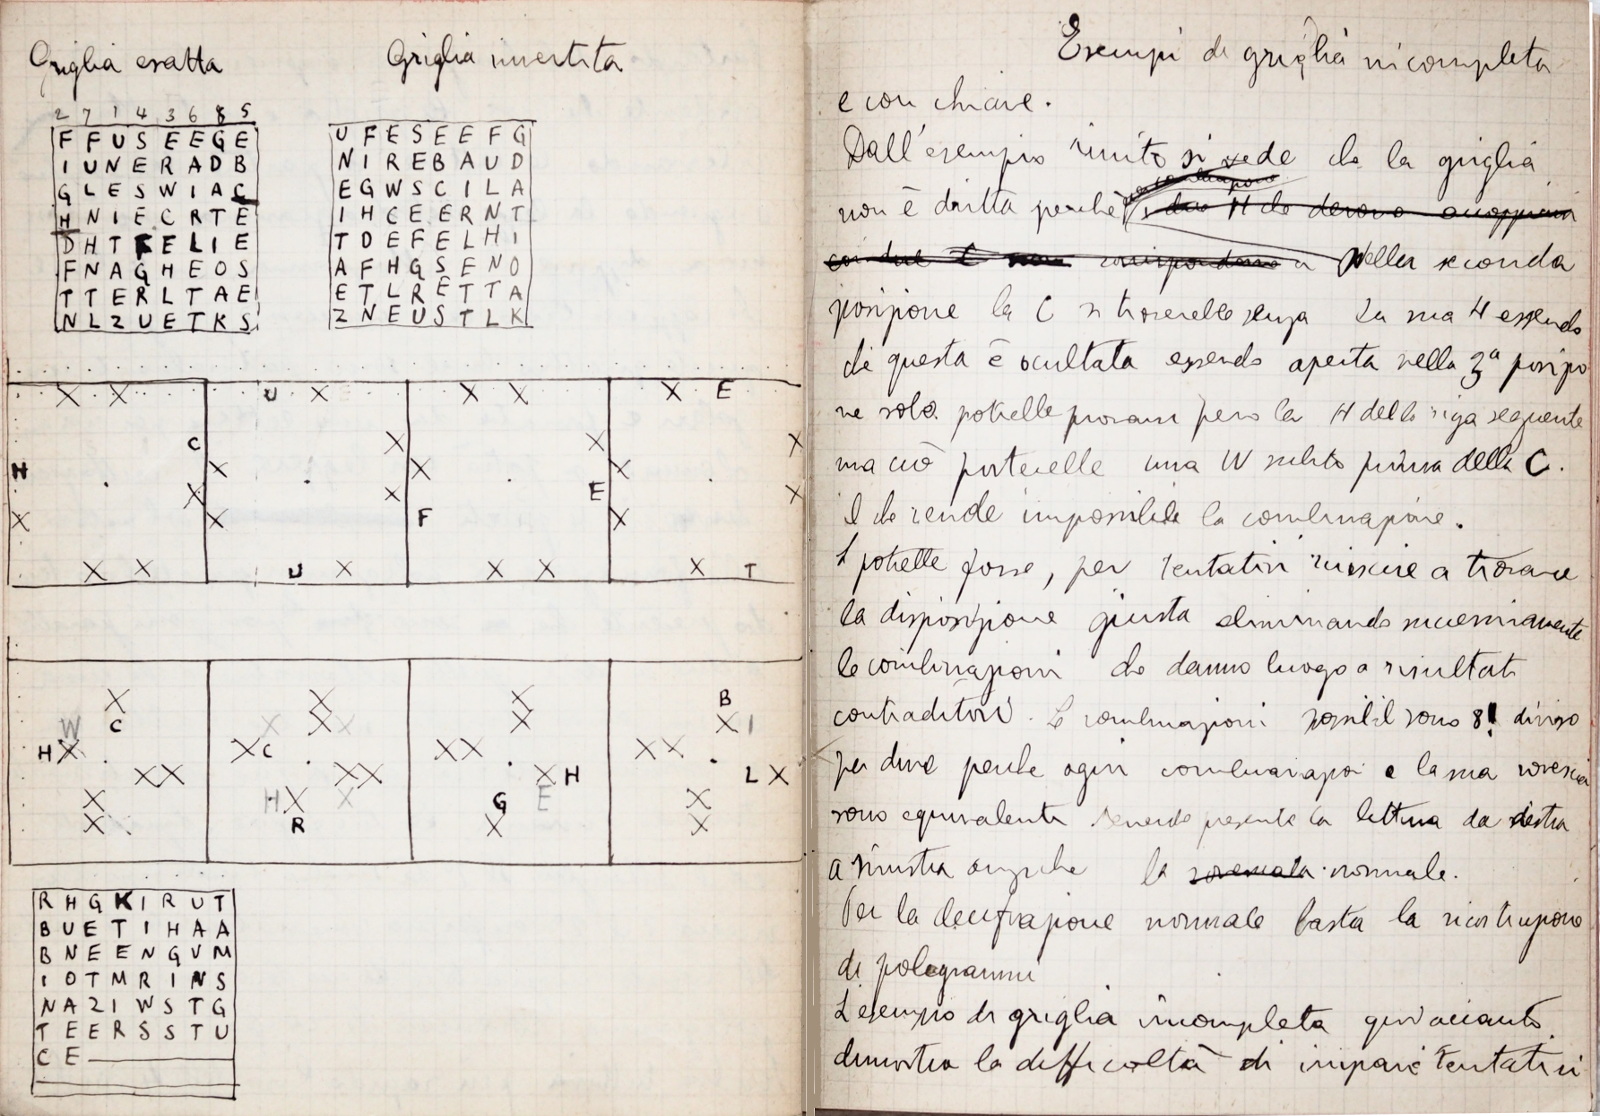 Griglia esatta
Griglia invertita
2 7 1 4 3 6 8 5
F F U S E E G E
I U N E R A D B
G L E S W I A C
H N I E C R T E
D H T F E L I E
F N A G H E O S
T T E R L T A E
N L Z U E T K S
U F E S E E F G
N I R E B A U D
E G W S C I L A
I H C E E R N T
T D E F E L H I
A F H G S E N O
E T L R E T T A
Z N E U S T L K
X X U X X X X E
C X X X
H X X X
X X E X
X X F X
X X U X X X X T
X X X B
W C X X X X X X I
H X X C X X X X
X X X X X H L X
X H X X G E X
X R X X
R H G K I R U T
B U E T I H A A
B N E E N G U M
I O T M R I N S
N A Z I W S T G
T E E R S S T U
C E
Esempi di griglia incompleta
e con chiave.
Dall'esempio unito si vede che la griglia
non è dritta perchè i due H che devono
con due corrispondono a Nella seconda
posizione la C si troverebbe senza la sua H essendo
che questa è ocultata essendo aperta nella 3ª posizio
ne solo. potrebbe provarsi pero la H della riga seguente
ma ciò porterebbe una W subito prima della C.
il che rende impossibile la combinazione.
Si potrebbe forse, per tentativi riuscire a trovare
la disposizione giusta eliminando successivamente
le combinazioni che danno luogo a risultati
contraditori. Le combinazioni possibili sono 8! diviso
per due perche ogni combinazioi e la sua rovescia
sono equivalenti tenendo presente la lettura da destra
a sinistra anziche la rovesciata normale.
Per la decifrazione normale basta la ricostruzione
di poligrammi
L'esempio di griglia incompleta qui accanto
dimostra la difficoltà di simili tentativi